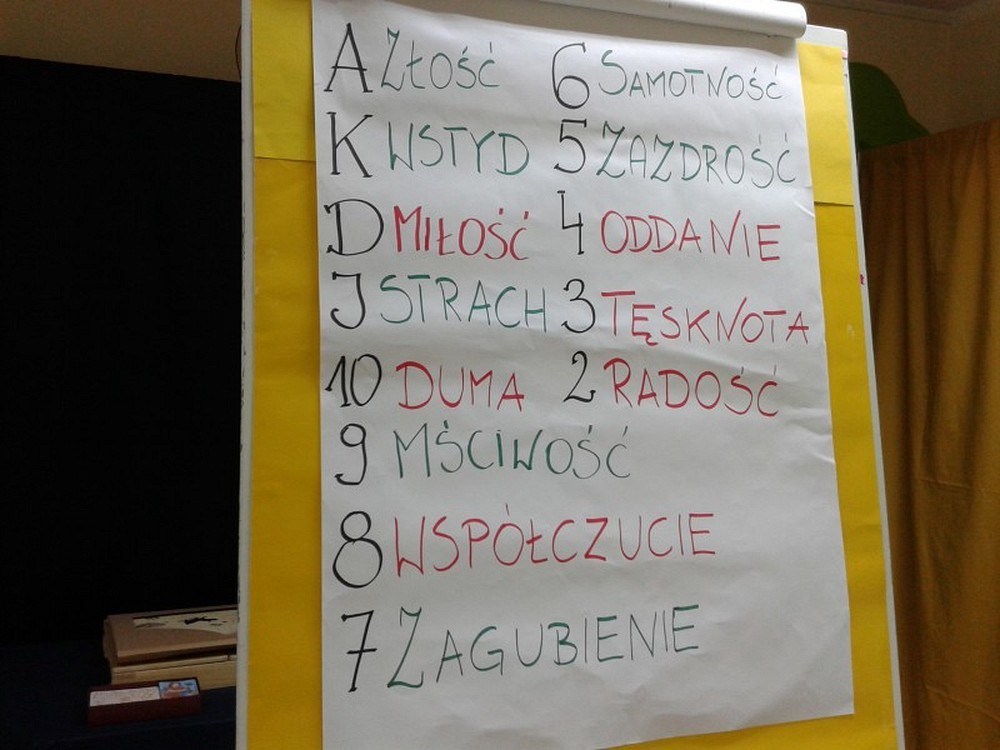 A ZŁOŚĆ
K WSTYD
D MIŁOŚĆ
J STRACH
10 DUMA
9 MŚCIWOŚĆ
8 WSPÓŁCZUCIE
7 ZAGUBIENIE
6 SAMOTNOŚĆ
5 ZAZDROŚĆ
4 ODDANIE
3 TĘSKNOTA
2 RADOŚĆ